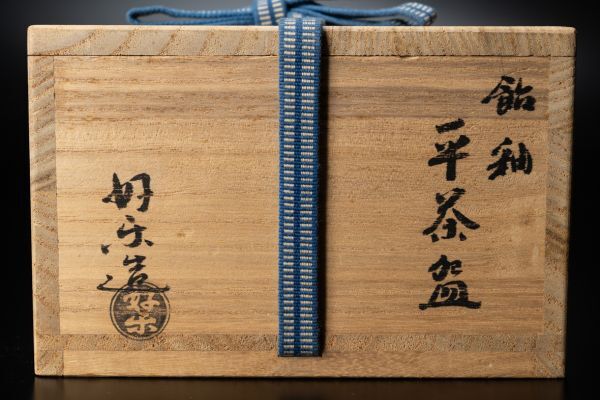 飴釉
平茶盌
好楽造
好楽